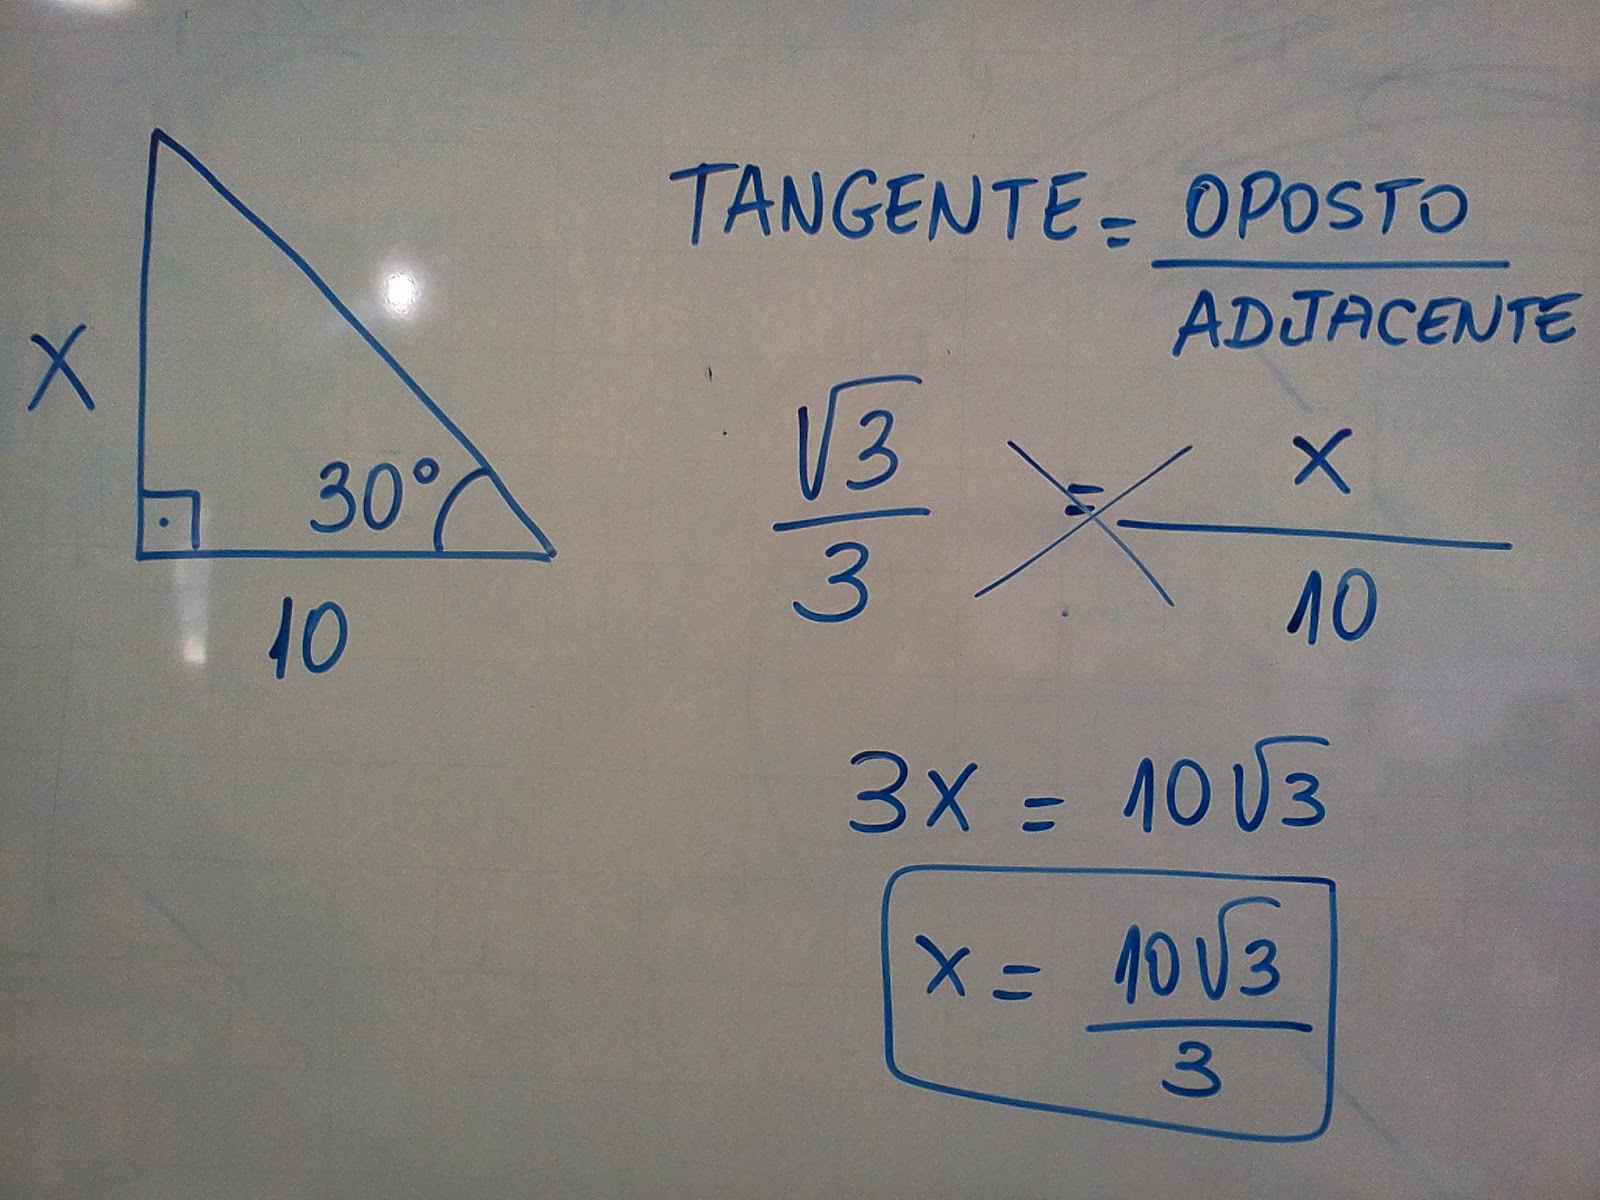 X
30°
10
TANGENTE = OPOSTO / ADJACENTE
√3 / 3 = X / 10
3X = 10√3
X = 10√3 / 3